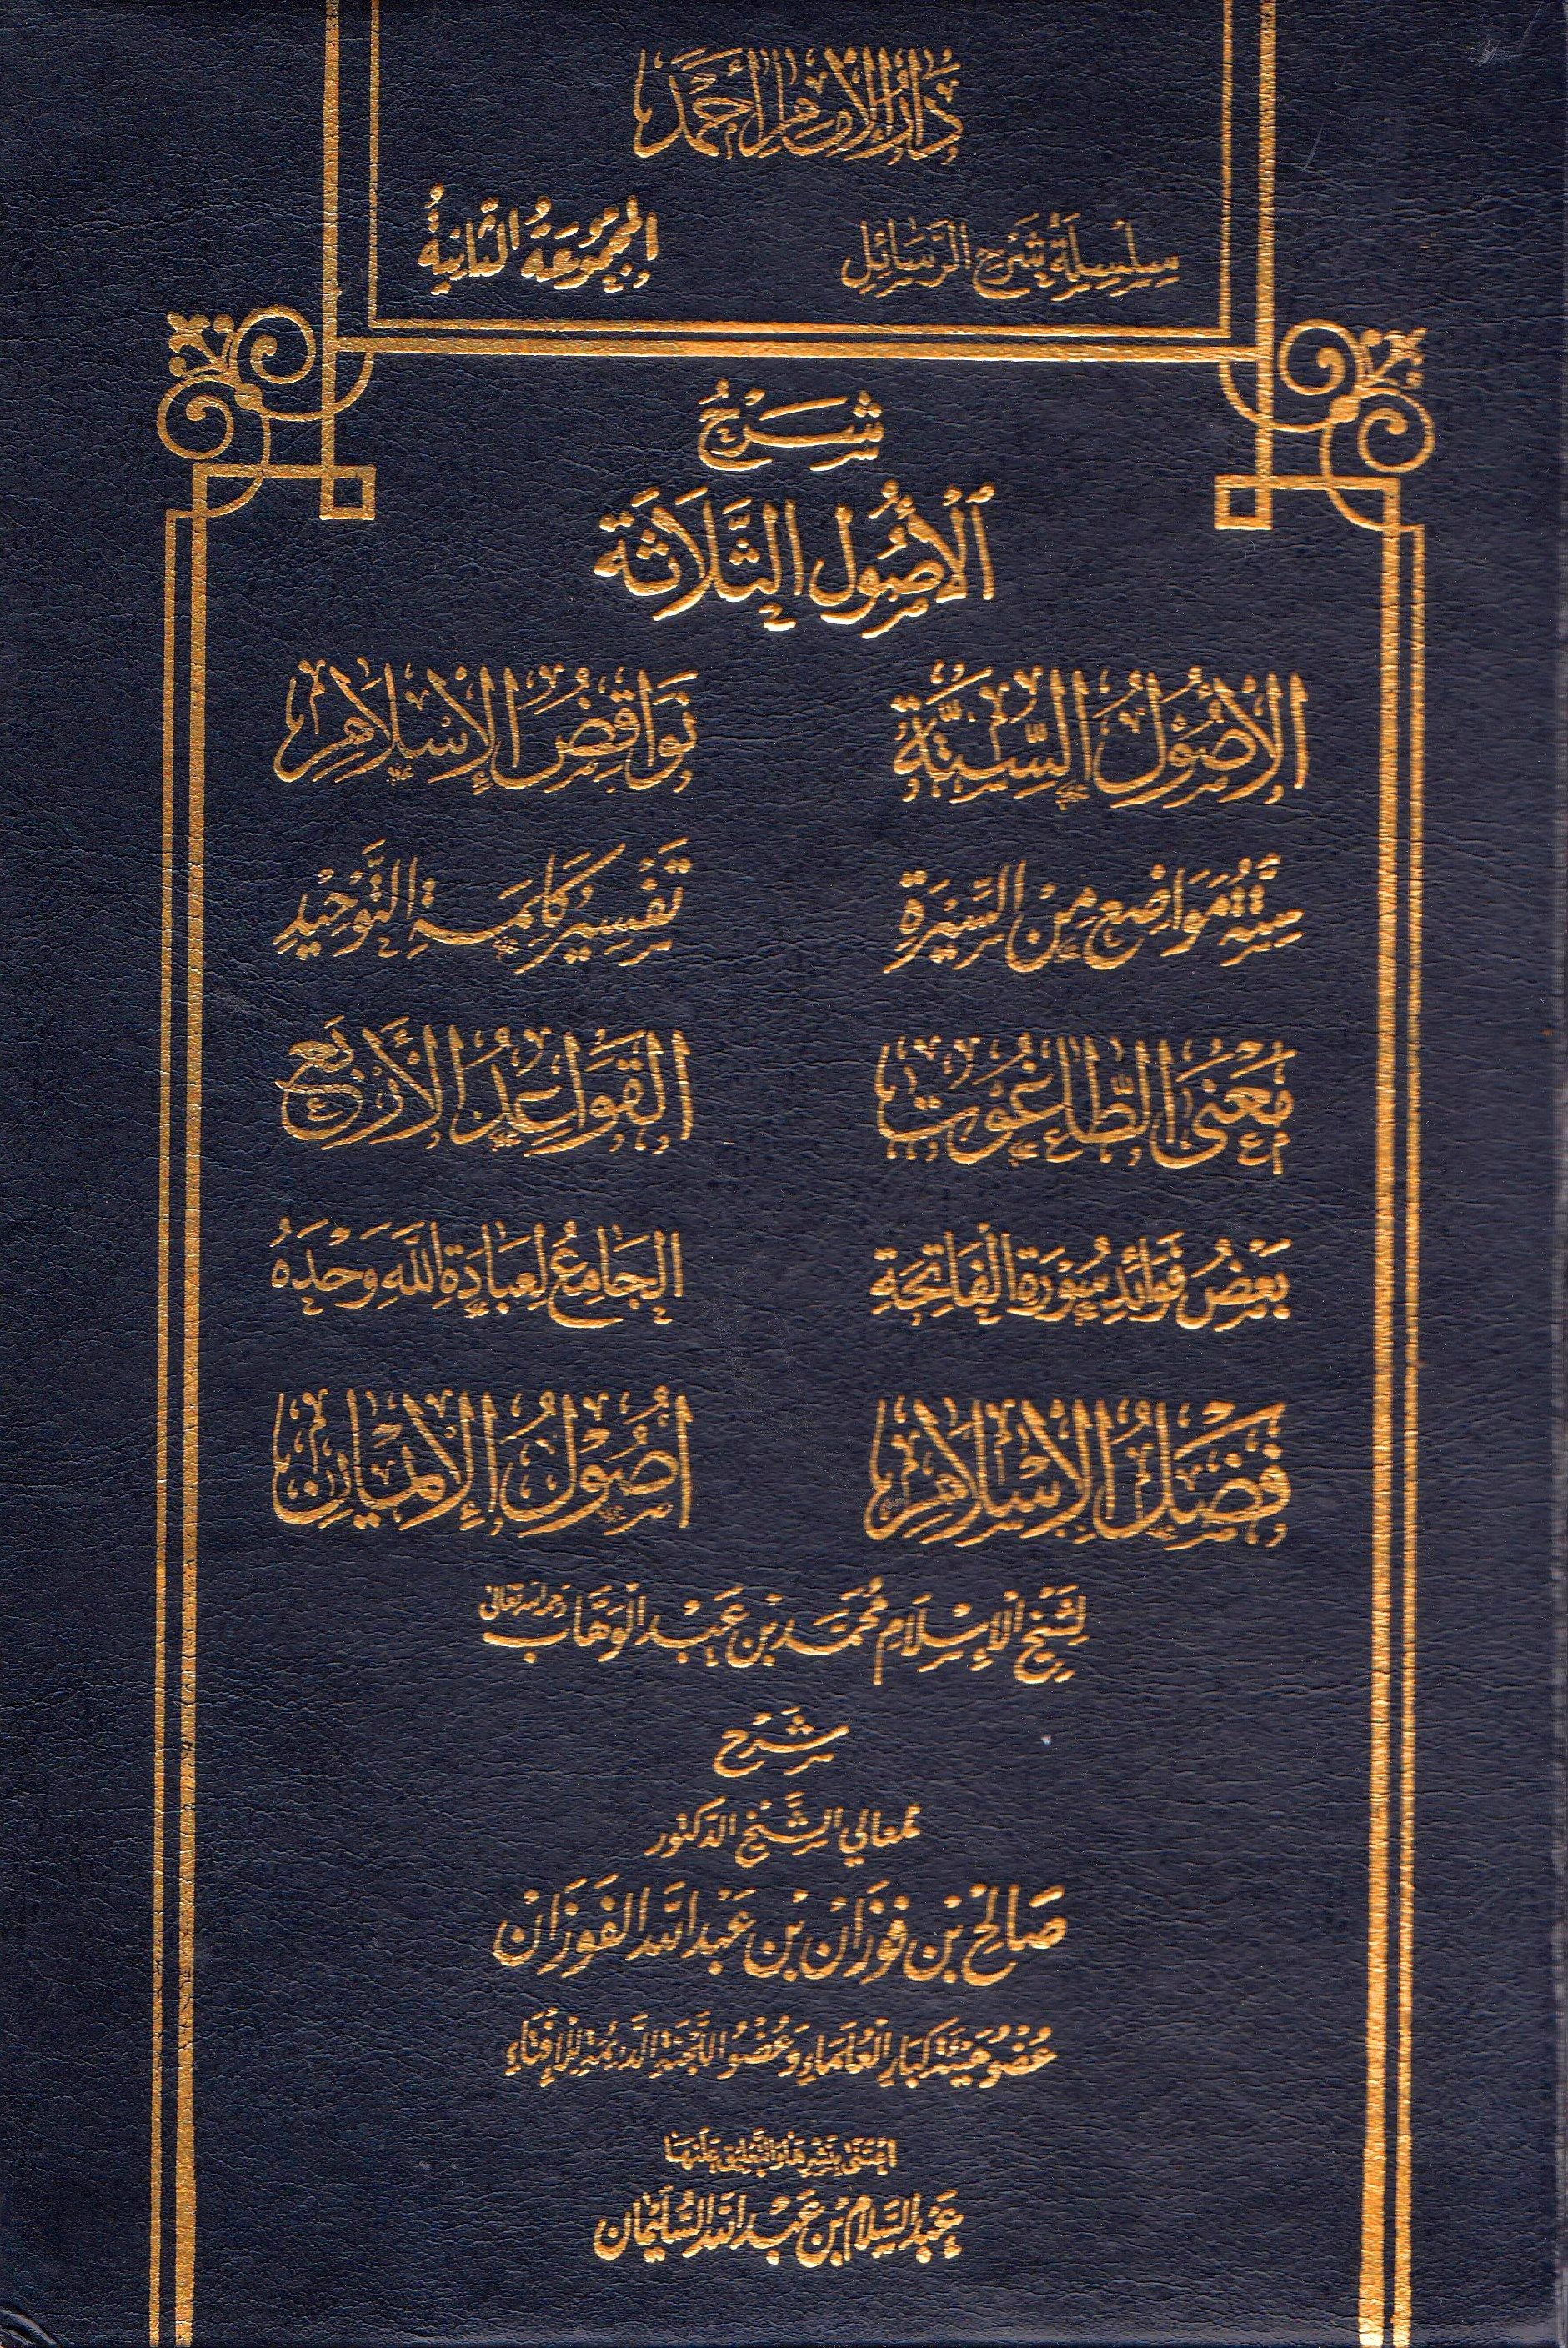 دار الإمام أحمد
سلسلة شرح الرسائل المجموعة الثانية
شَرْحُ
الأُصُول الثَّلَاثَة
الأُصُولُ السِّتَّةُ نَوَاقِضُ الإِسْلَامِ
سِتَّةُ مَوَاضِعَ مِنَ السِّيرَةِ تَفْسِيرُ كَلِمَةِ التَّوْحِيْدِ
مَعْنَى الطَّاغُوْتِ القَوَاعِدُ الأَرْبَعُ
بَعْضُ فَوَائِدِ سُورَةِ الْفَاتِحَةِ الجَامِعُ لِعِبَادَةِ اللَّهِ وَحْدَهُ
فَضْلُ الإِسْلَامِ أُصُوْلُ الإِيْمَانِ
لِشَيْخِ الْإِسْلَامِ مُحَمَّد بْنِ عَبْدِ الْوَهَّاب رحمه الله تعالى
شَرْح
لمعالي الشيخ الدكتور
صَالِح بْن فَوْزَان بْن عَبْد اللَّه الفَوْزَان
عُضْو هَيْئَة كِبَار الْعُلَمَاءِ وَعُضْوُ اللَّجْنَة الدَّائِمَة لِلْإِفْتَاءِ
اعْتَنَى بِنَشْرِهَا وَالتَّعْلِيقِ عَلَيْهَا
عَبْدُ السَّلَام بْن عَبْدِ اللَّه السُّلَيْمَان